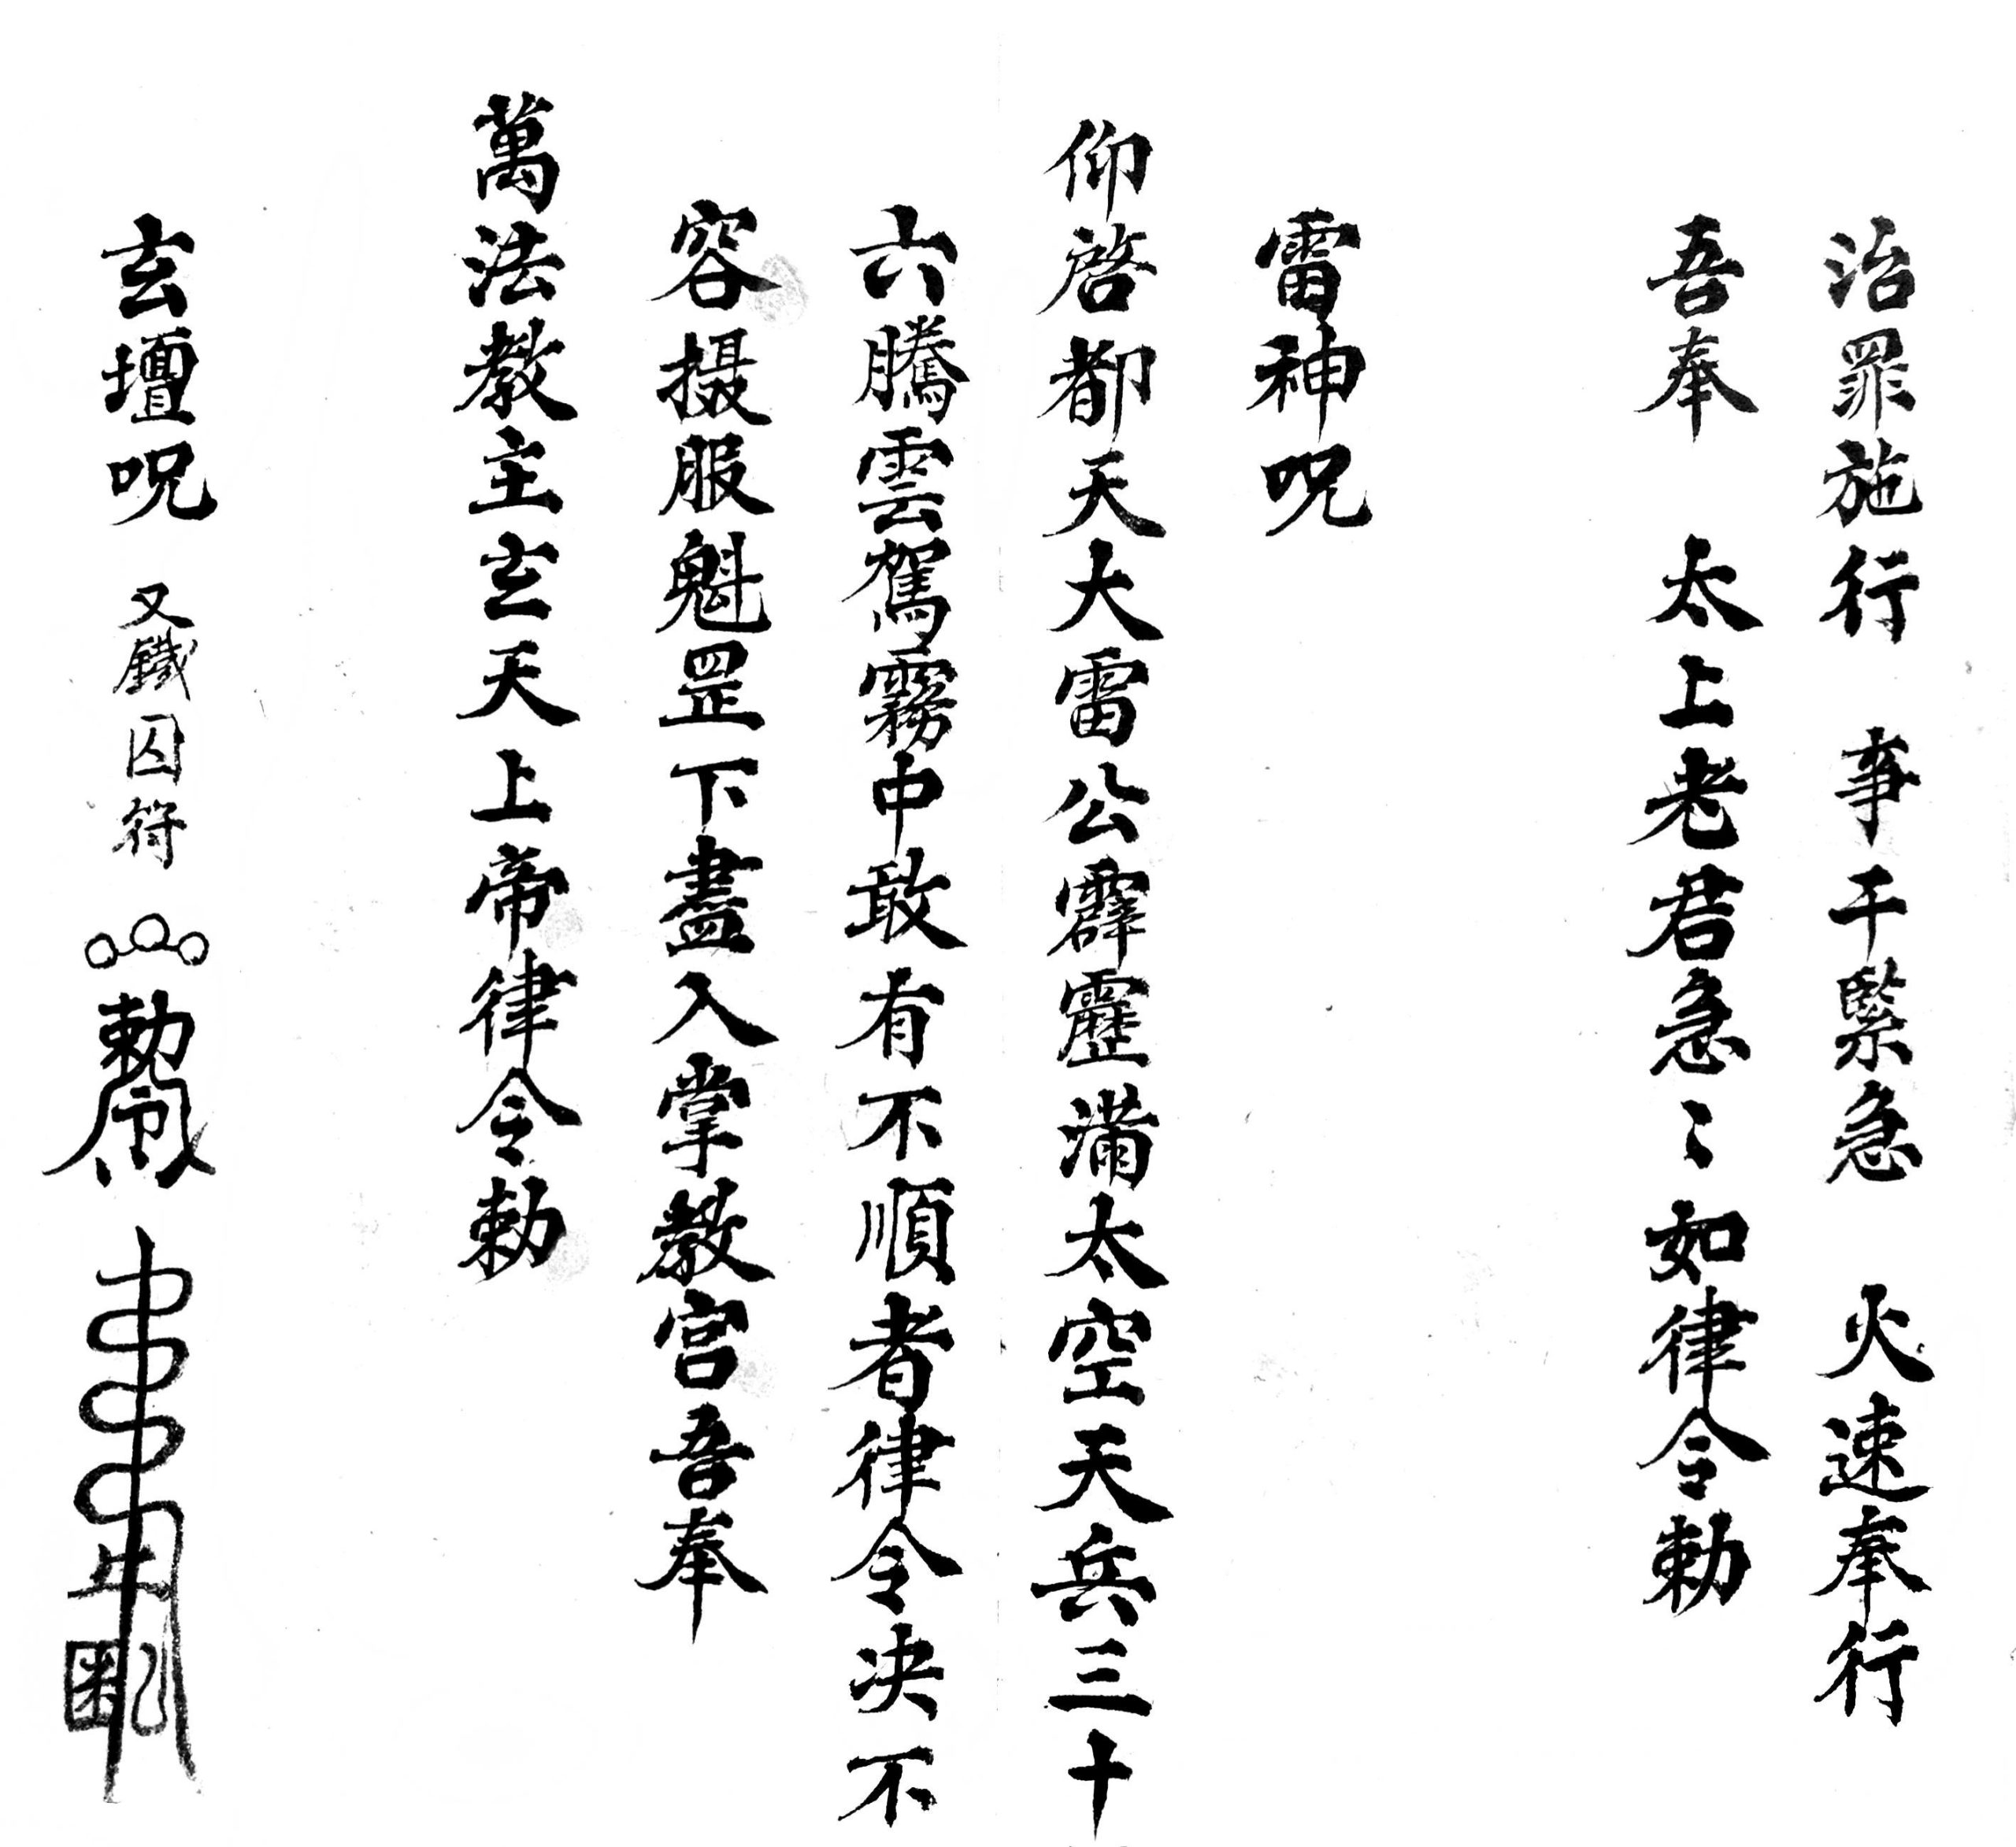 治罪施行　事干緊急　火速奉行
吾奉　太上老君急〻如律令勅
雷神咒
仰啓都天大雷公霹靂滿太空天兵三十
六騰雲駕霧中敢有不順者律令决不
容摄服魁罡下盡入掌教宫吾奉
萬法教主玄天上帝律令勅
玄壇呪　又鐵囚符　勅